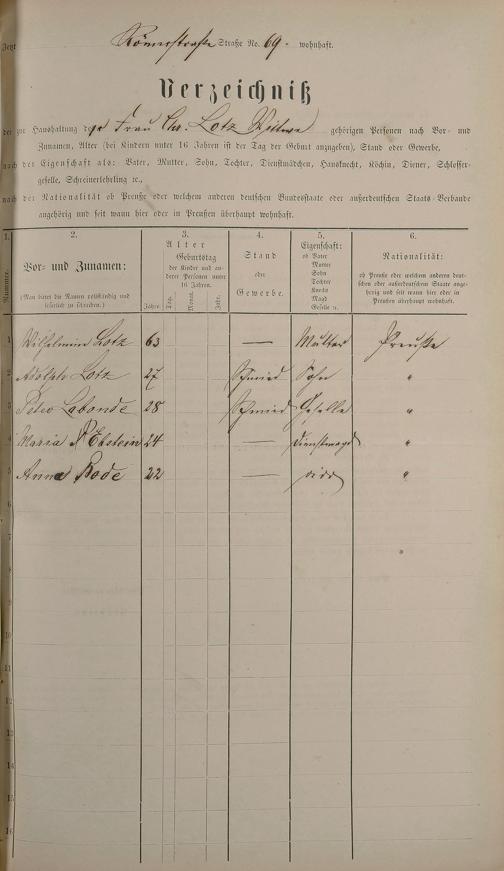 Jetzt Römerstraße Straße No. 69. wohnhaft.
Verzeichniß
der zur Haushaltung der Frau Chr. Lotz Wittwe gehörigen Personen nach Vor- und
Zunamen, Alter (bei Kindern unter 16 Jahren ist der Tag der Geburt anzugeben), Stand oder Gewerbe,
nach der Eigenschaft als: Vater, Mutter, Sohn, Tochter, Dienstmädchen, Hausknecht, Köchin, Diener, Schlosser-
geselle, Schreinerlehrling ꝛc.,
nach der Nationalität ob Preuße oder welchem anderen deutschen Bundesstaate oder außerdeutschen Staats-Verbande
angehörig und seit wann hier oder in Preußen überhaupt wohnhaft.
1. 2. 3. 4. 5. 6.
Nummer.
Vor- und Zunamen:
(Man bittet die Namen vollständig und
leserlich zu schreiben.)
Alter
Geburtstag
der Kinder und an-
derer Personen unter
16 Jahren.
Jahre. Tag. Monat. Jahr.
Stand
oder
Gewerbe.
Eigenschaft:
ob Vater
Mutter
Sohn
Tochter
Knecht
Magd
Geselle ꝛc.
Nationalität:
ob Preuße oder welchem anderen deut-
schen oder außerdeutschem Staate ange-
hörig und seit wann hier oder in
Preußen überhaupt wohnhaft.
1 Wilhelmine Lotz 63 — Mutter Preuße
2 Adolph Lotz 27 Schmied Sohn "
3 Peter Labonde 28 Schmied Geselle "
4 Maria Ebstein 24 — Dienstmagd "
5 Anna Bode 22 — "
6
7 "
8
9
10
11
12
13
14
15
16